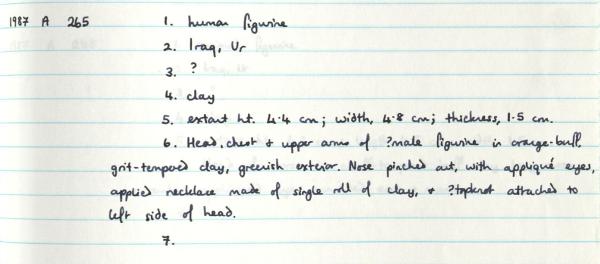 1987 A 265 1. human figurine
2. Iraq, Ur
3. ?
4. clay
5. extant ht. 4.4 cm; width, 4.8 cm; thickness, 1.5 cm.
6. Head, chest & upper arms of ?male figurine in orange-buff,
grit-tempered clay, greenish exterior. Nose pinched out, with appliqué eyes,
applied necklace made of single roll of clay, & ?topknot attached to
left side of head.
7.